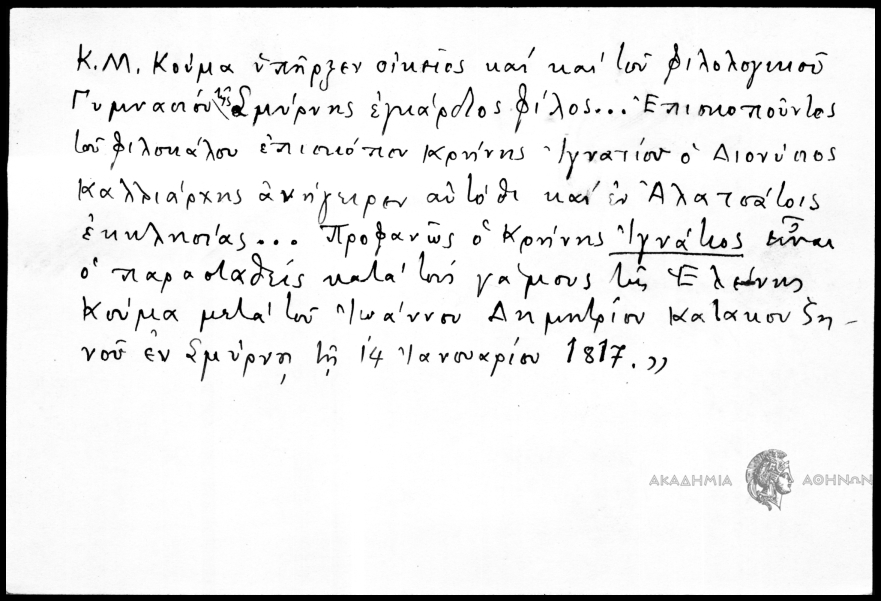 Κ.Μ. Κούμα ὑπῆρξεν οἰκεῖος καί καί τοῦ φιλολογικοῦ
Γυμνασίου τῆς Σμύρνης ἐγκάρδιος φίλος... Ἐπισκοποῦντος
τοῦ φιλοκάλου ἐπισκόπου Κρήνης Ἰγνατίου ὁ Διονύσιος
Καλλιάρχης ἀνήγειρεν αὐτόθι καί ἐν Ἀλατσάτοις
ἐκκλησίας... Προφανῶς ὁ Κρήνης Ἰγνάτιος εἶναι
ὁ παρασταθείς κατά τούς γάμους τῆς Ἑλένης
Κούμα μετά τοῦ Ἰωάννου Δημητρίου Κατακουζη-
νοῦ ἐν Σμύρνῃ τῇ 14 Ἰανουαρίου 1817.»
ΑΚΑΔΗΜΙΑ ΑΘΗΝΩΝ